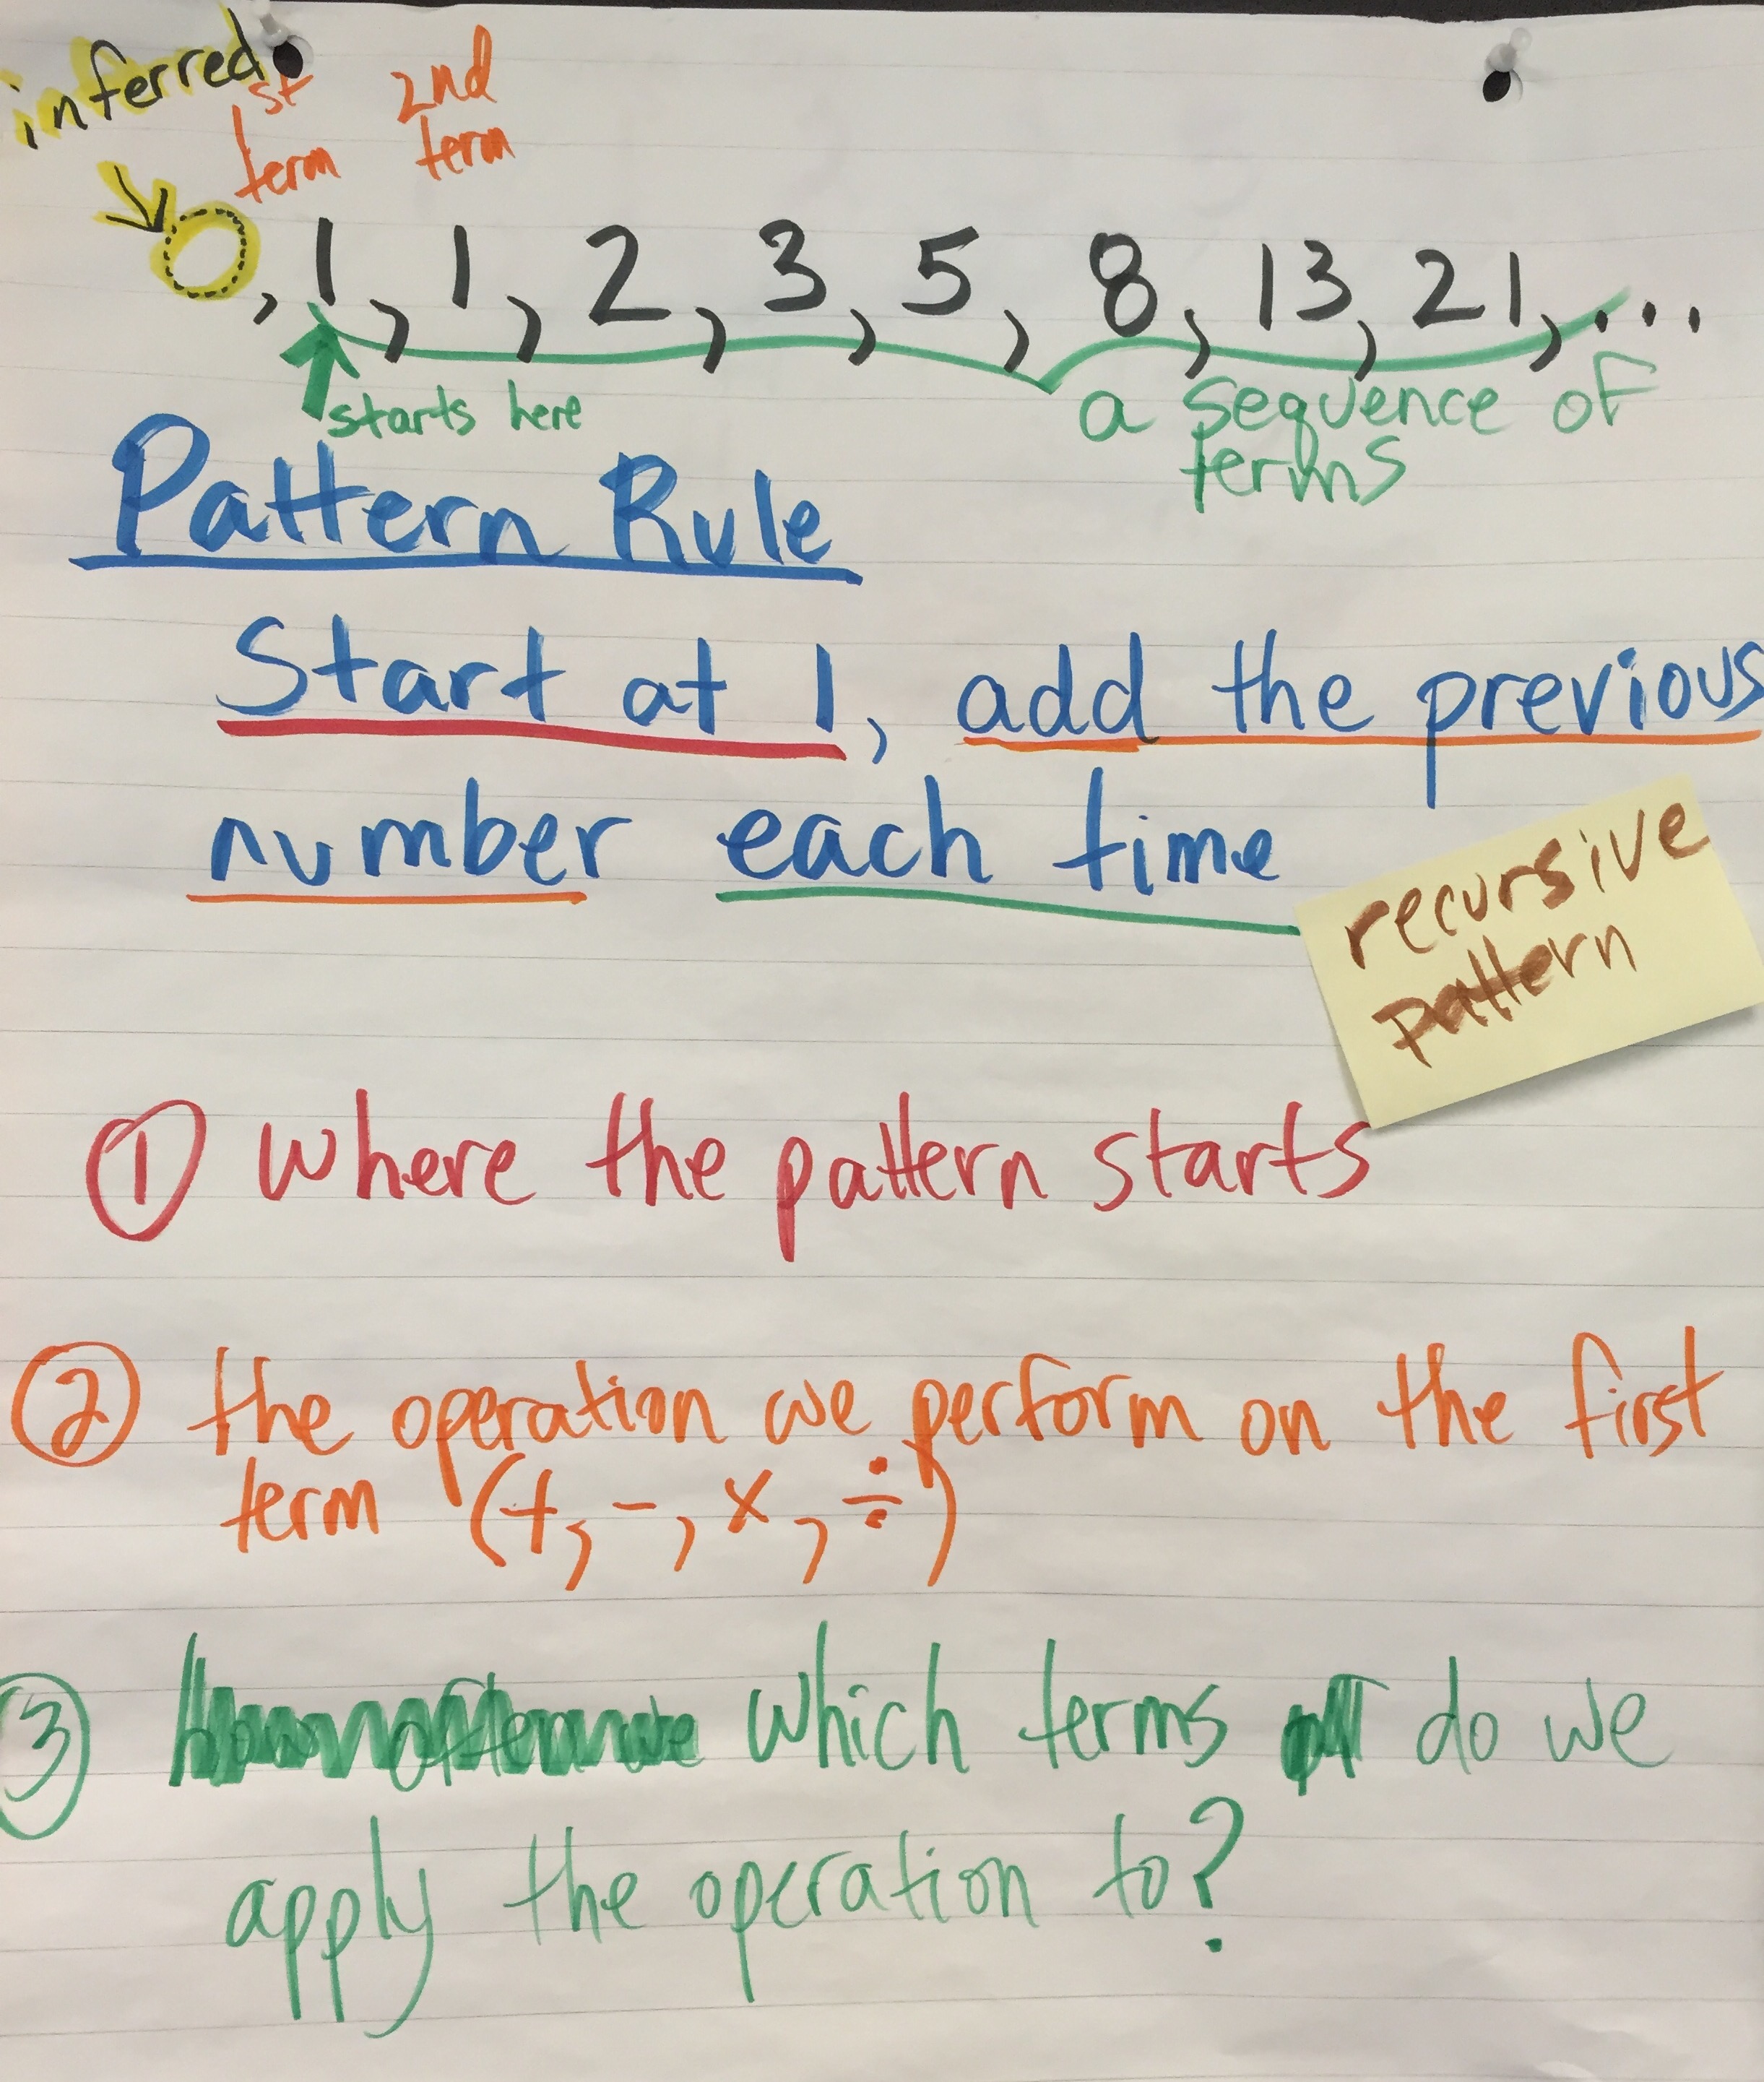 inferred
1st 2nd
term term
0, 1, 1, 2, 3, 5, 8, 13, 21, ...
starts here
a sequence of
terms
Pattern Rule
Start at 1, add the previous
number each time
recursive
pattern
① where the pattern starts
② the operation we perform on the first
term (+, -, x, ÷)
③ which terms do we
apply the operation to?